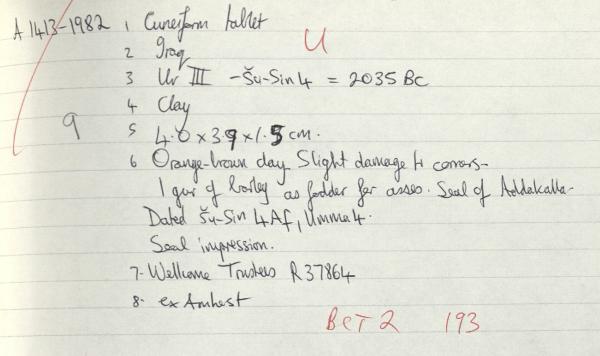 A 1413-1982 1 Cuneiform tablet
U
2 Iraq
3 Ur III - Šu-Sin 4 = 2035 BC
4 Clay
9
5 4.0 x 3.9 x 1.5 cm.
6 Orange-brown clay Slight damage to corners-
1 gur of barley as fodder for asses. Seal of Addakalla-
Dated Šu-Sin 4 Af, Umma 4.
Seal impression.
7- Wellcome Trustees R 37864
8- ex Amhest
BCT 2 193